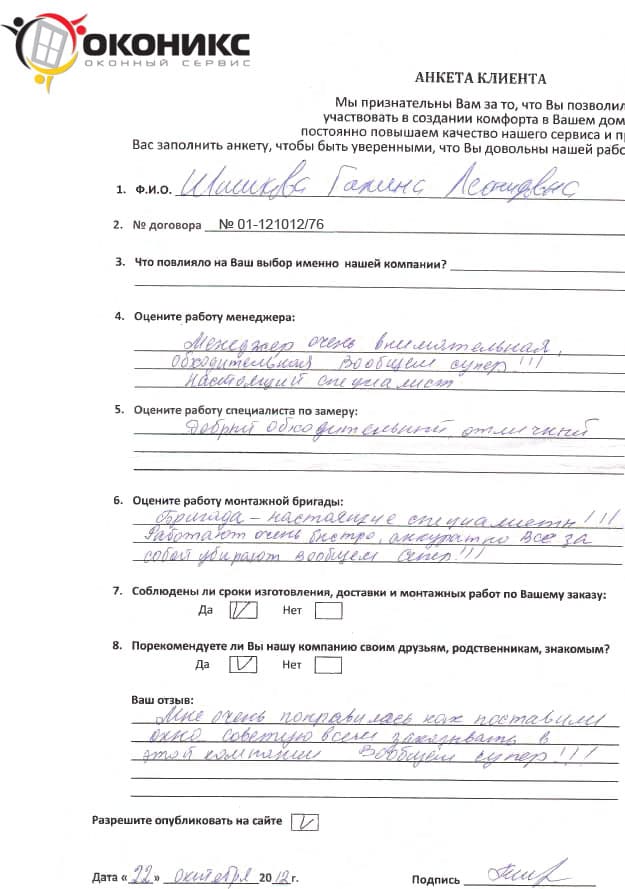 ОКОНИКС
ОКОННЫЙ СЕРВИС
АНКЕТА КЛИЕНТА
Мы признательны Вам за то, что Вы позволил
участвовать в создании комфорта в Вашем дом
постоянно повышаем качество нашего сервиса и пр
Вас заполнить анкету, чтобы быть уверенными, что Вы довольны нашей рабо
1. Ф.И.О. Шишкова Галина Леонидовна
2. № договора № 01-121012/76
3. Что повлияло на Ваш выбор именно нашей компании?
4. Оцените работу менеджера:
Менеджер очень внимательная,
обходительная вообщем супер!!!
настоящий специалист
5. Оцените работу специалиста по замеру:
Добрый обходительный, отличный
6. Оцените работу монтажной бригады:
Бригада – настоящие специалисты!!!
Работают очень быстро, аккуратно все за
собой убирают вообщем супер!!!
7. Соблюдены ли сроки изготовления, доставки и монтажных работ по Вашему заказу:
Да V Нет
8. Порекомендуете ли Вы нашу компанию своим друзьям, родственникам, знакомым?
Да V Нет
Ваш отзыв:
Мне очень понравилась как поставили
окно советую всем заказывать в
этой компании вообщем супер!!!
Разрешите опубликовать на сайте V
Дата «22» октября 2012г.
Подпись